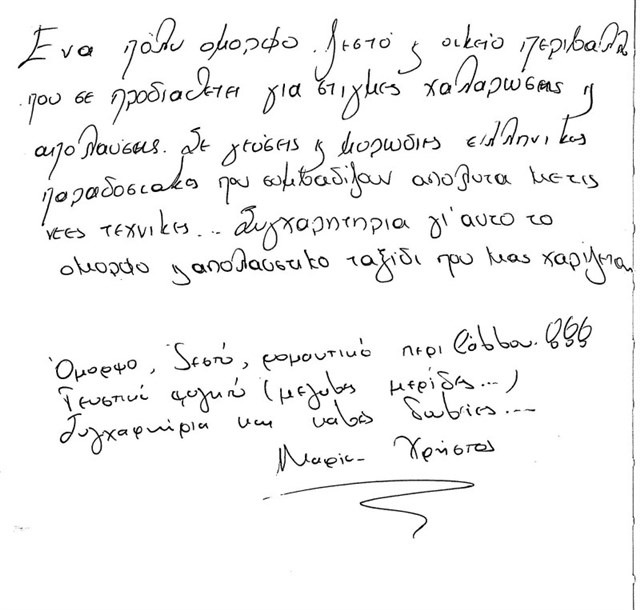 Ενα πολυ ομορφο. Ζεστό & οικείο περιβαλλ
που σε προδιαθετει για στιγμες χαλαρωσεις &
απολαυσεις. Σε γευσεις & μυρωδιες ελληνικες
παραδοσιακες που συμβαδιζαν απολυτα με τις
νεες τεχνικες... Συγχαρητηρια γι'αυτο το
ομορφο & απολαυστικο ταξιδι που μας χαρισατε
Όμορφο, ζεστό, ρομαντικό περιβάλλον. !!!
Γευστικό φαγητό (μεγάλες μερίδες...)
Συγχαρητήρια και καλές δουλειές...
Μαρία - Χρήστος